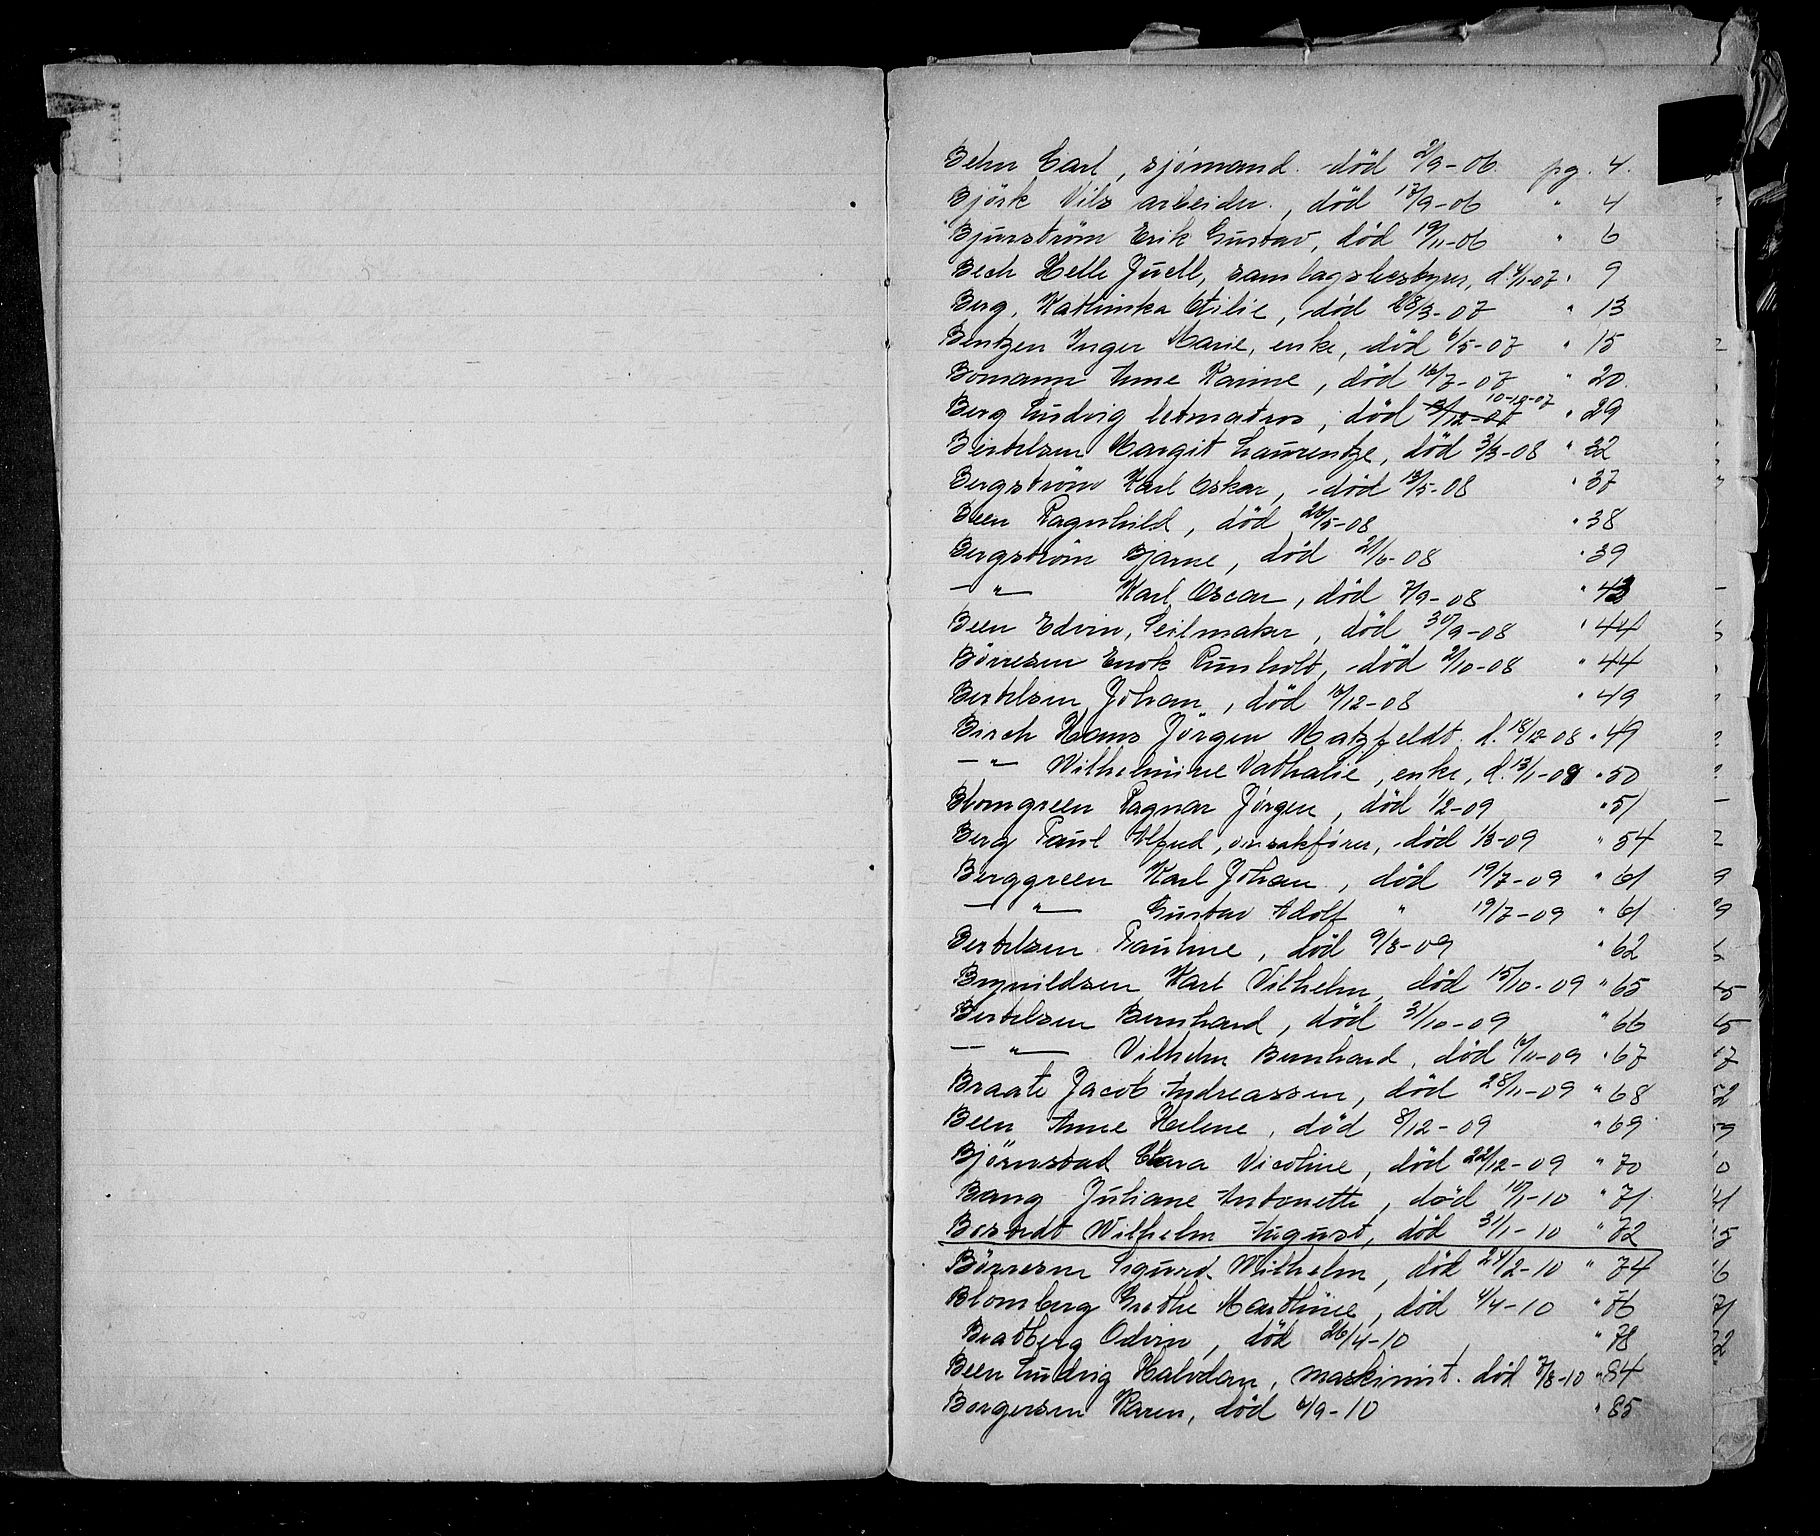 Behn Carl, sjømand. död 2/9-06. pg. 4.
Björk Nils arbeider., död 17/9-06 " 4
Bjurström Erik Gustav, död 19/11-06 " 6
Bech Helle Juell, samlagsbestyrer, d. 4/1-07 " 9
Berg, Kathinka Otilie, död 28/3-07 " 13
Bentzen Inger Marie, enke, död 6/5-07 " 15
Bomann Anne Karine, död 16/7-07 " 20.
Berg Ludvig letmatros, död 10-10-07 " 29
Bertelsen Margit Laurentze, död 3/3-08 " 32
Bergström Karl Oskar, död 13/5-08 " 37
Been Ragnhild, död 26/5-08 " 38
Bergström Bjarne, död 21/6-08 " 39
— " — Karl Oscar, död 7/9-08 " 43
Been Edvin, Seilmaker, död 30/9-08 " 44
Börresen Enok Runholt, död 2/10-08 " 44
Bertelsen Johan, död /12-08 " 49
Birch Hans Jörgen Matzfeldt. d. 18/12-08 " 49
— " — Wilhelmine Nathalie, enke, d. 13/1-09 " 50
Blomgreen Ragnar Jörgen, död 1/2-09 " 51
Berg Paul Alfred, overakförer, död 1/3-09 " 54
Berggreen Karl Johan, död 19/7-09 " 61
— " — Gustav Adolf " 19/7-09 " 61
Bertelsen Pauline, död 9/8-09 " 62
Brynildsen Karl Vilhelm, död 15/10-09 " 65
Bertelsen Bernhard, död 31/10-09 " 66
— " — Vilhelm Bernhard, död /11-09 " 67
Braate Jacob Andreassen, död 28/11-09 " 68
Been Anne Helene, död 8/12-09 " 69
Björnstad Clara Nicoline, död 22/12-09 " 70
Bang Juliane Antonette, död 10/1-10 " 71
Berndt Wilhelm August, död 31/1-10 " 72
Börresen Sigurd Wilhelm, död 24/2-10 " 74
Blomberg Grethe Marthine, död 4/4-10 " 76
Bratberg Odvin, död 26/4-10 " 78
Been Ludvig Halvdan, maskinist. död 7/8-10 " 84
Borgersen Karen, död 4/9-10 " 85